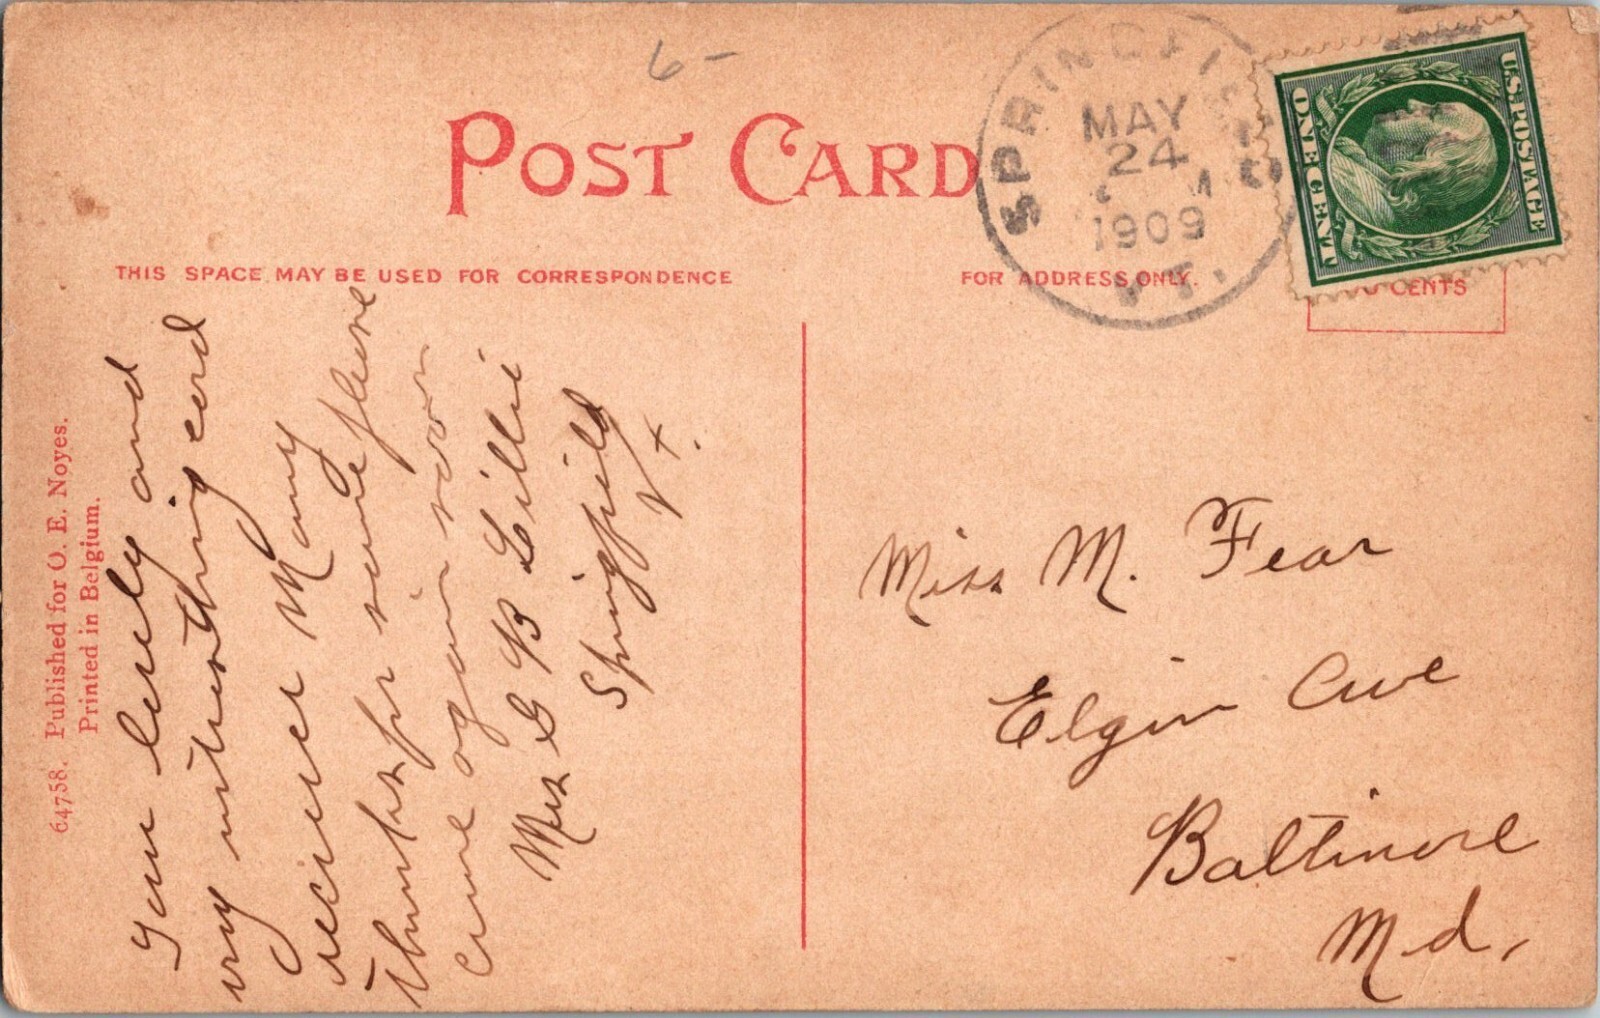 6-
POST CARD
SPRINGFIELD
MAY
24
M
1909
VT.
U.S. POSTAGE
ONE CENT
THIS SPACE MAY BE USED FOR CORRESPONDENCE
FOR ADDRESS ONLY.
CENTS
64758. Published for O. E. Noyes.
Printed in Belgium.
Your lovely and
very interesting card
received Many
thanks for same please
come again soon
Mrs G B Lillie
Springfield
Vt.
Miss M. Fear
Elgin Ave
Baltimore
Md.